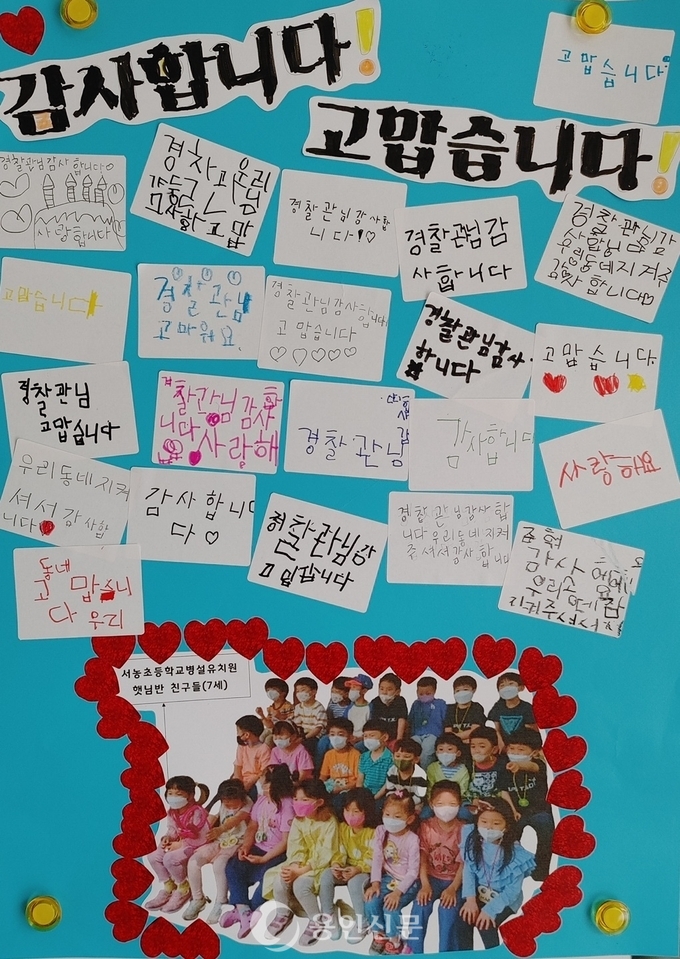 감사합니다!
고맙습니다!
고맙습니다
경찰관님감사합니다♡
사랑합니다
경찰관님
우리
경찰관님감사합
니다!♡
경찰관님감
사합니다
경찰관님감
우리동네지켜주
합니다♡
고맙습니다
경찰관님
고마워요.
경찰관님감사합니다
고맙습니다
♡♡♡♡♡
경찰관님감사
하니다
고맙습니다.
경찰관님
고맙습니다
경찰관님감사합
니다
사랑해
경찰관님
감사합니다
사랑해요
우리동네지켜
셔서감사합
니다
감사합니
다♡
경찰관님감
경찰관님감사합
니다우리동네지켜
주셔서감사합니다
동네
고맙습니
다우리
서농초등학교병설유치원
햇님반 친구들(7세)
용인신문